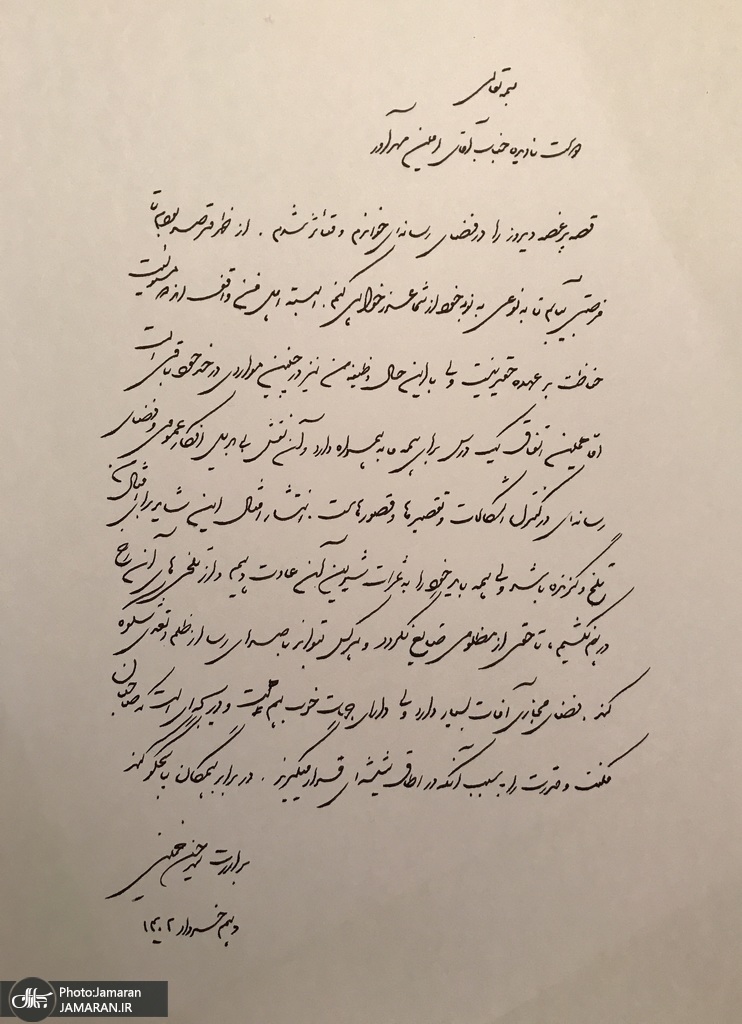 بسمه تعالی
دوست نادیده جناب آقای امین مهرآور
قصه پرغصه دیروز را در فضای رسانه‌ای خواندم و متاثر شدم . از خدا فرصت
فرصتی بیابم تا به نوعی به نوبه خود از شما عذرخواهی کنم. البته اهل فن واقف‌اند مسئولیت
حفاظت بر عهده حقیر نیست ولی با این حال وظیفه من نیز در چنین مواردی در حد خود باقی است
اما همین اتفاق یک درس برای همه ما به همراه دارد و آن نقش بی بدیل افکار عمومی و فضای
رسانه‌ای در کنترل اشکالات و تقصیرها و قصورهاست . انتشار امثال این شاید برای امثال من
تلخ و گزنده باشد ولی همه باید خود را به ثمرات شیرین آن عادت دهیم و از تلخی‌های آن رخ
در هم نکشیم ، تا حقی از مظلومی ضایع نگردد و هر کس بتواند با صدای رسا از ظلم و تعدی شکوه
کند . فضای مجازی آفات بسیار دارد ولی دارای جهات خوب هم هست و دریچه‌ای است که صاحبان
مکنت و قدرت را به سبب آنکه در اطاق شیشه‌ای قرار میگیرند . در برابر همگان پاسخگو کند
برادرت سید حسن خمینی
دهم خرداد ۱۴۰۲
Photo:Jamaran
JAMARAN.IR
جماران